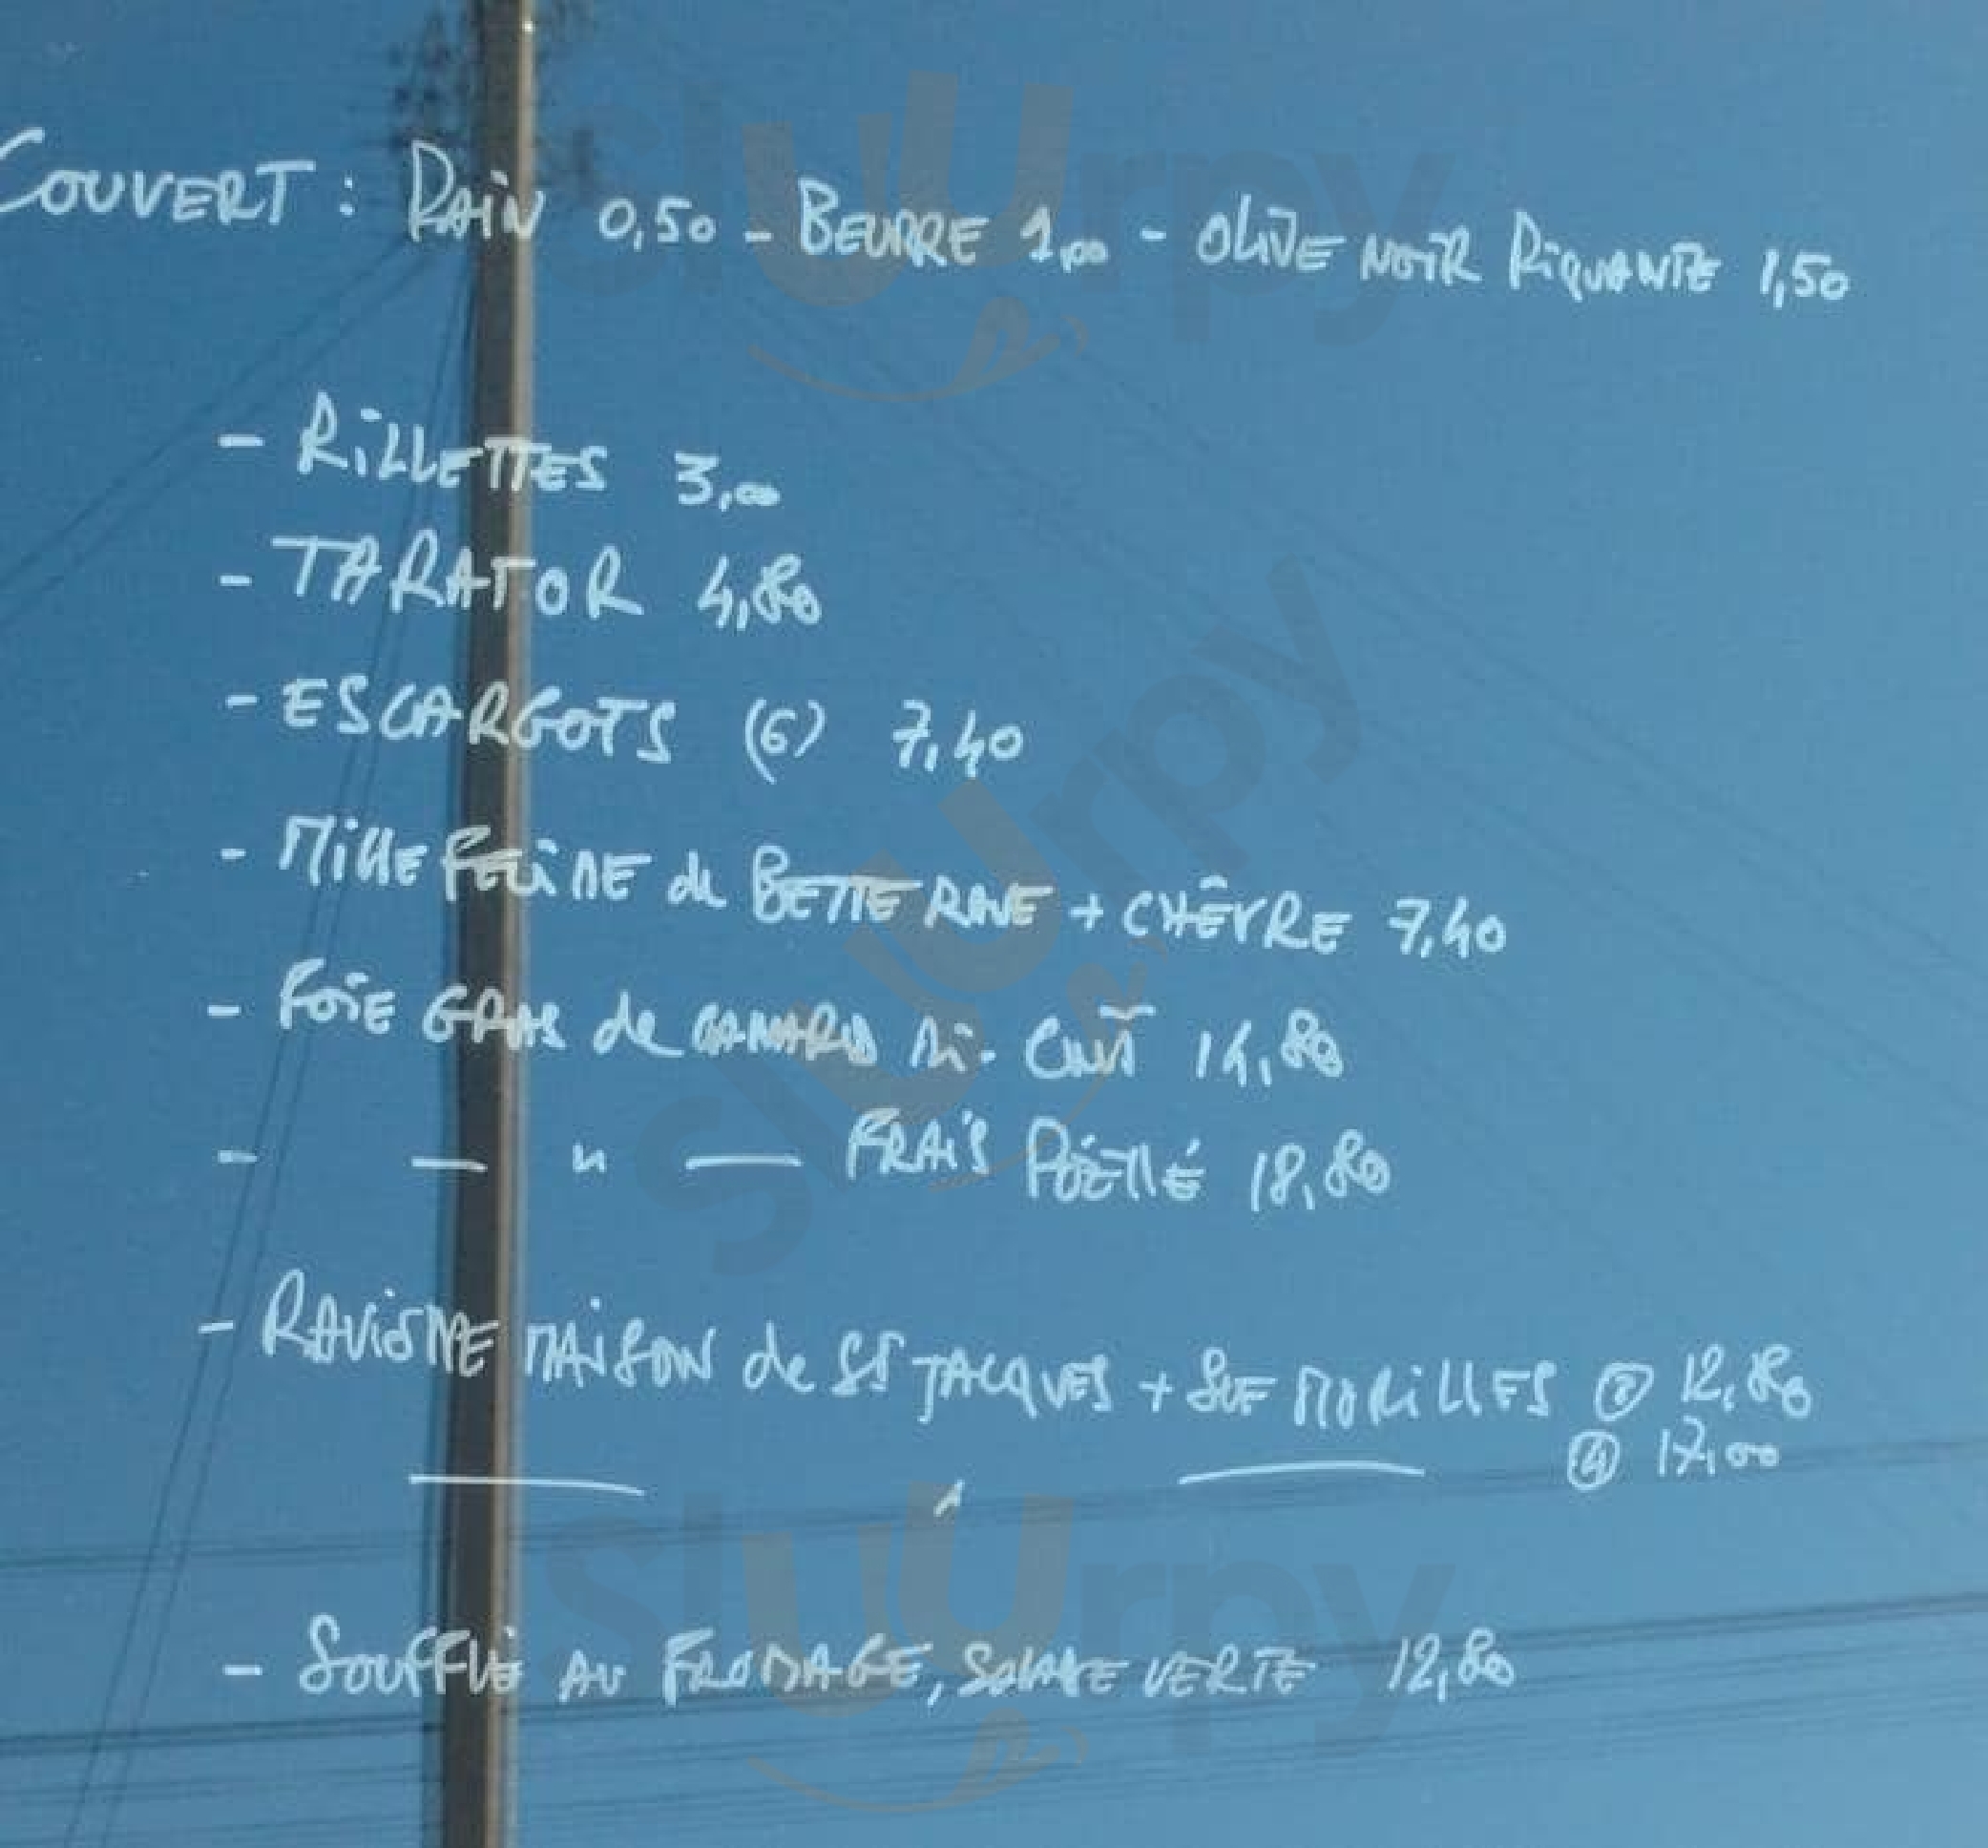 COUVERT : PAIN 0,50 - BEURRE 1,00 - OLIVE NOIR PIQUANTE 1,50
- RILLETTES 3,00
- TARATOR 4,80
- ESCARGOTS (6) 7,40
- MILLEFEUILLE de BETTERAVE + CHÊVRE 7,40
- FOIE GRAS de CANARD MI-CUIT 14,80
- — " — FRAIS POÊLLÉ 18,80
- RAVIOLLE MAISON de ST JACQUES + SCE MORILLES ② 12,80
④ 17,00
- SOUFFLÉ AU FROMAGE, SALADE VERTE 12,80
slUUrpy
slUUrpy
slUUrpy